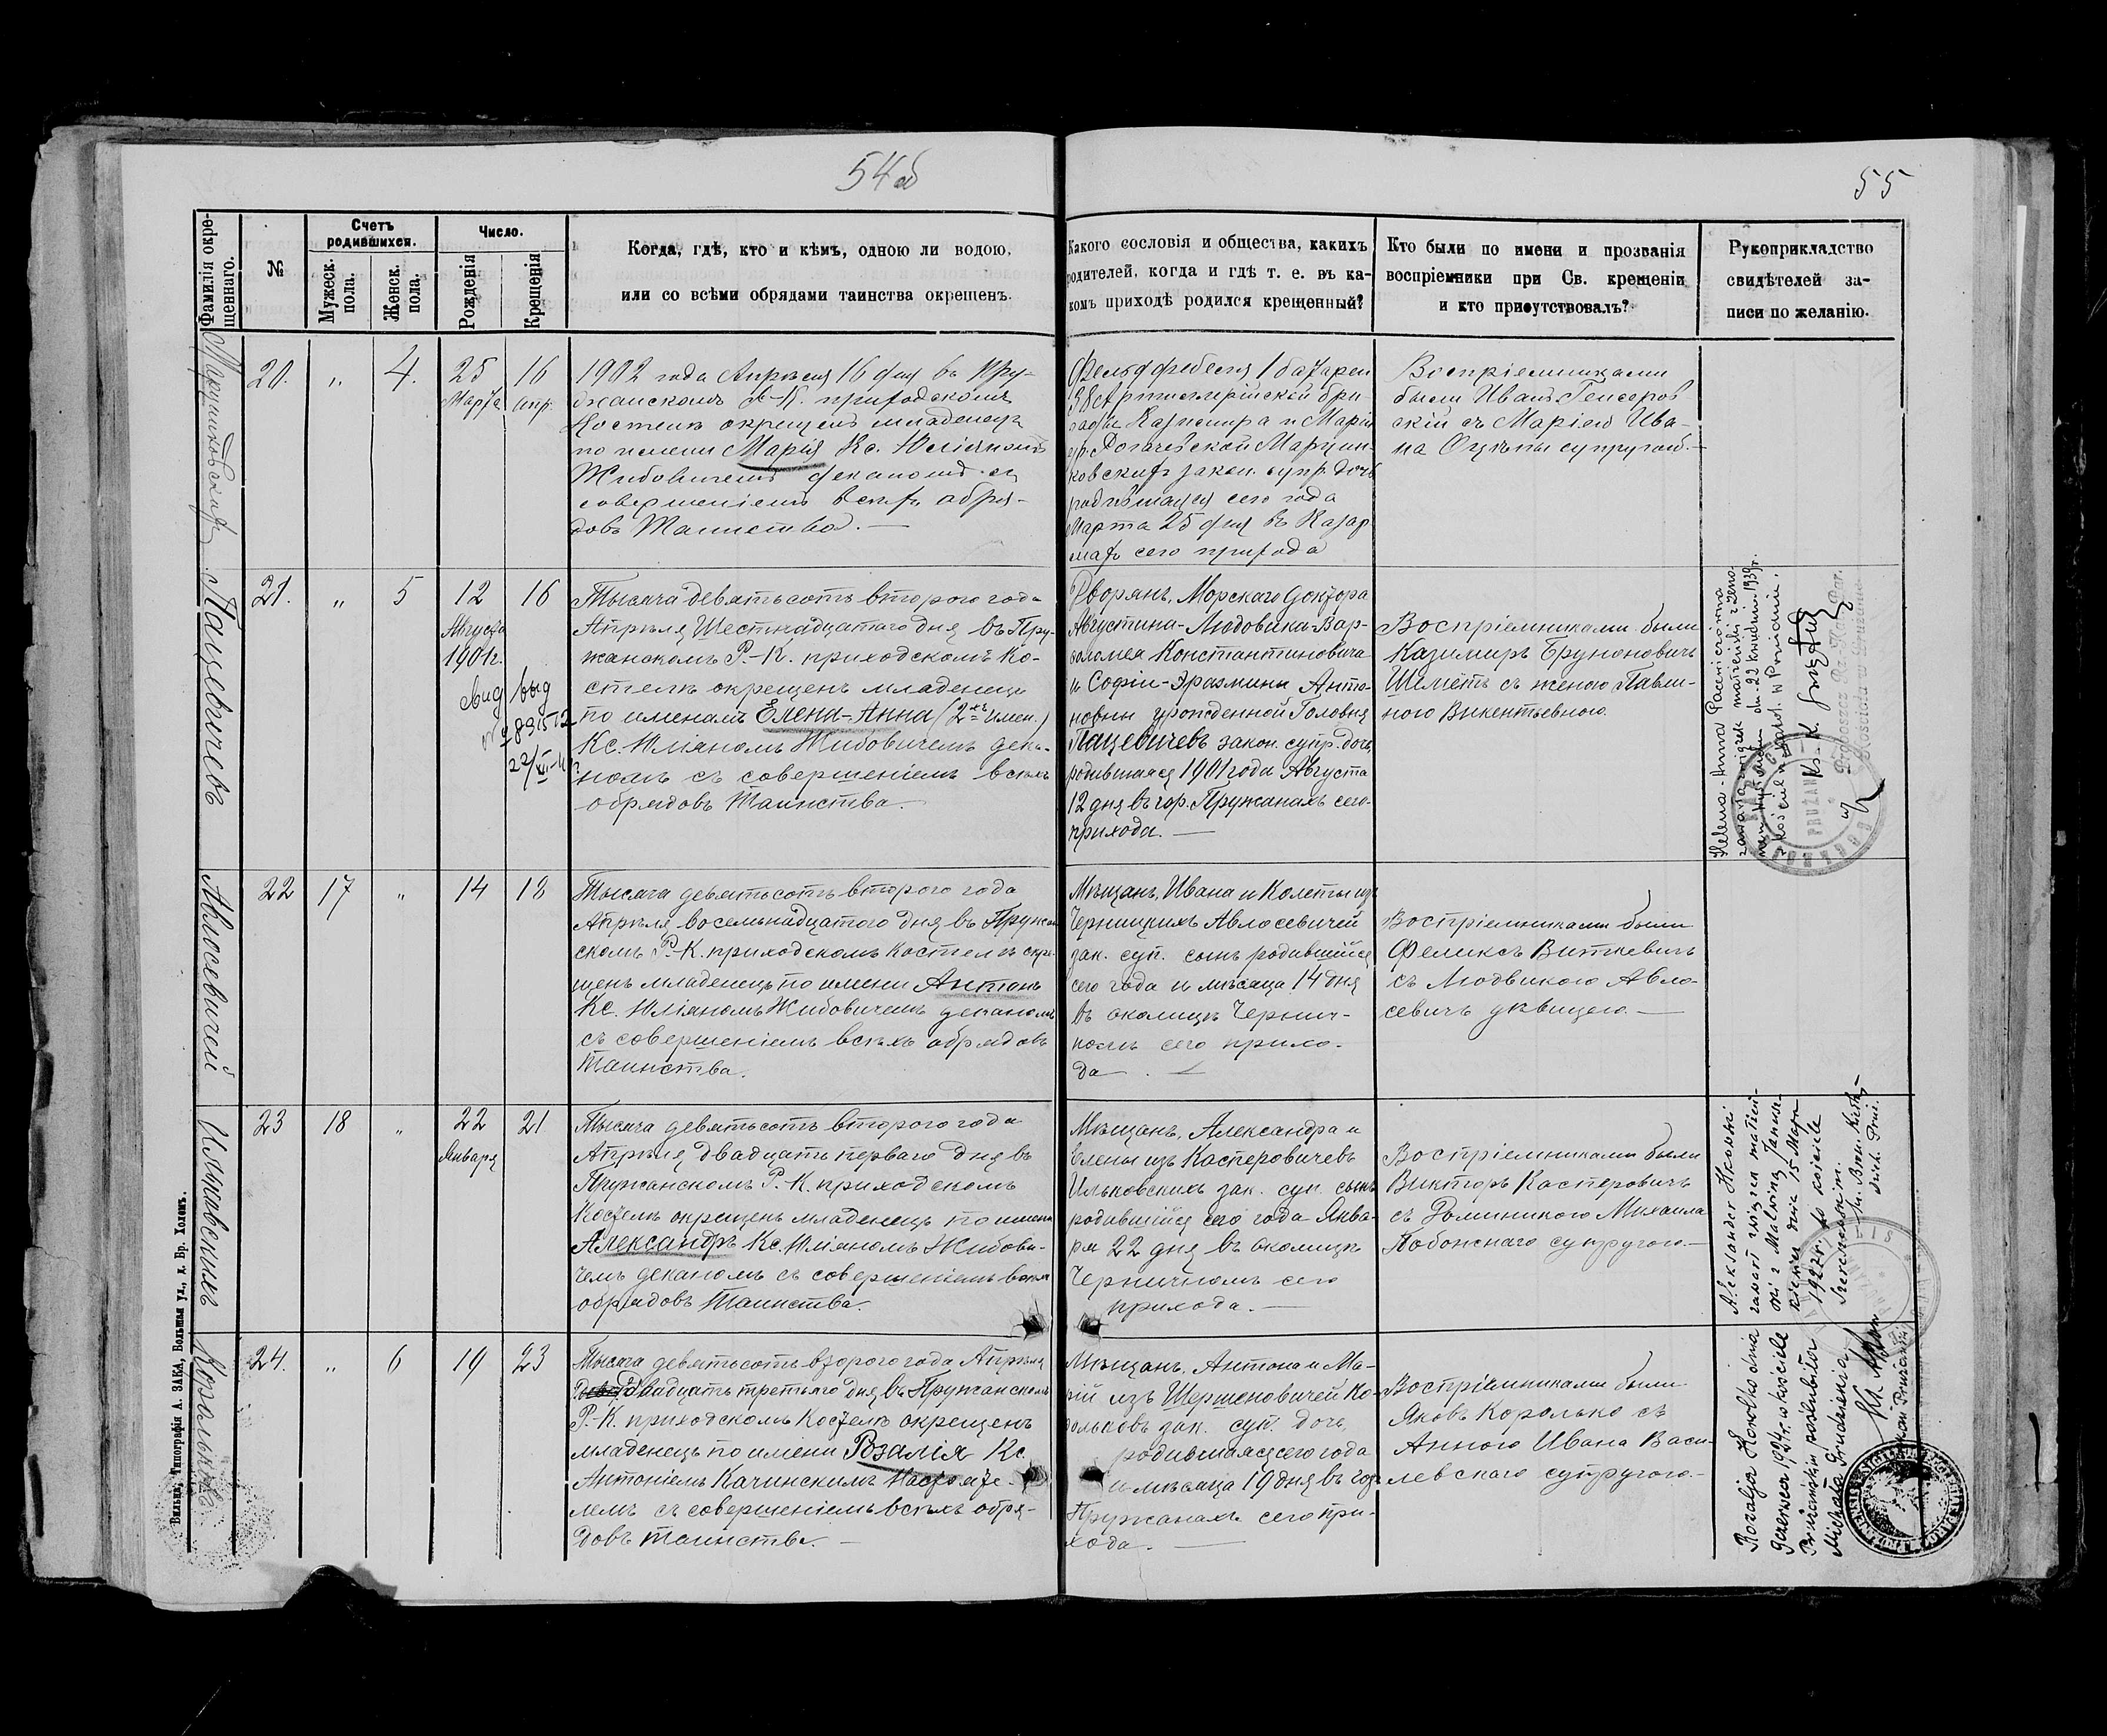 54об
55
Фамилія окре-
щеннаго.
№
Счетъ
родившихся.
Мужеск.
пола.
Женск.
пола.
Число.
Рожденія
Крещенія
Когда, гдѣ, кто и кѣмъ, одною ли водою,
или со всѣми обрядами таинства окрещенъ.
Какого сословія и общества, какихъ
родителей, когда и гдѣ т. е. въ ка-
комъ приходѣ родился крещенный?
Кто были по имени и прозванія
воспріемники при Св. крещеніи
и кто присутствовалъ?
Рукоприкладство
свидѣтелей за-
писи по желанію.
20.
„
4.
25
Марта
16
Апр.
1902 года Апрѣля 16 дня въ Пру-
жанскомъ Р.-К. приходскомъ
Костелѣ окрещенъ младенецъ
по имени Марія Кс. Юліяномъ
Жибовичемъ деканомъ съ
совершеніемъ всѣхъ обря-
довъ Таинства. —
Фельдфебеля 1 батареи
38 Артиллерійской бри
гады Казимира и Маріи
ковскихъ закон. супр. дочь
родившаяся сего года
Марта 25 дня въ Казар
махъ сего прихода
Воспріемниками
были Иванъ
скій съ Маріею Ива-
на супругой. —
Пацевичевъ
21.
„
5
12
Августа
1901 г.
16
Вид выд
Тысяча девятьсотъ второго года
Апрѣля Шестнадцатаго дня въ Пру-
жанскомъ Р.-К. приходскомъ Ко-
стелѣ окрещенъ младенецъ
по именамъ Елена-Анна (2хъ имен.)
Кс. Юліяномъ Жибовичемъ дека-
номъ съ совершеніемъ всѣхъ
обрядовъ Таинства. —
Дворянъ, Морскаго доктора
Августина-Людовика-Вар-
ѳоломея Константиновича
и Софіи-Эразмины Анто-
новны урожденной Головня
Пацевичевъ закон. супр. дочь,
родившаяся 1901 года Августа
12 дня въ гор. Пружанахъ сего
прихода. —
Воспріемниками были
Казимиръ Бруноновичъ
Шиметъ съ женою Павли-
ною Викентьевною.
Helena-Anna
Авлосевичей
22
17
„
14
18
Тысяча девятьсотъ второго года
Апрѣля восемьнадцатого дня въ Пружан
скомъ Р.-К. приходскомъ Костелѣ окре-
щенъ младенецъ по имени Антонъ
Кс. Юліяномъ Жибовичемъ деканомъ
съ совершеніемъ всѣхъ обрядовъ
Таинства.
Мѣщанъ, Ивана и Колеты изъ
Черницкихъ Авлосевичей
зак. суп. сынъ родившійся
сего года и мѣсяца 14 дня
въ околицѣ Чернич-
номъ сего прихо-
да. —
Воспріемниками были
Феликсъ Виткевичъ
съ Людвикою Авло-
севичъ дѣвицею. —
Ильковскихъ
23
18
„
22
Января
21
Тысяча девятьсотъ второго года
Апрѣля двадцать перваго дня въ
Пружанскомъ Р.-К. приходскомъ
Костелѣ окрещенъ младенецъ по имени
Александръ Кс. Юліяномъ Жибови-
чемъ деканомъ съ совершеніемъ всѣхъ
обрядовъ Таинства.
Мѣщанъ, Александра и
Елены изъ Касперовичевъ
Ильковскихъ зак. суп. сынъ
родившійся сего года Янва-
ря 22 дня въ околицѣ
Черничномъ сего
прихода. —
Воспріемниками были
Викторъ Касперовичъ
съ Доминикою Михаила
Побожнаго супругою. —
Aleksander Ilkowski
zawarł związek małżeń-
ski z Malwiną
dnia 15 Maja
1927 r. w kościele
Корольковъ
24.
„
6
19
23
Тысяча девятьсотъ второго года Апрѣля
двадцать третьяго дня въ Пружанскомъ
Р.-К. приходскомъ Костелѣ окрещенъ
младенецъ по имени Розалія Кс.
Антоніемъ Качинскимъ Настояте-
лемъ съ совершеніемъ всѣхъ обря-
довъ таинства. —
Мѣщанъ, Антона и Ма-
ріи изъ Шершеновичей Ко-
рольковъ зак. суп. дочь,
родившаяся сего года
и мѣсяца 19 дня въ гор.
Пружанахъ сего при-
хода. —
Воспріемниками были
Яковъ Королько съ
Анною Ивана Васи-
левскаго супругою. —
Rozalja Korolko dnia
czerwca 1924 r. w kościele
Prużańskim poślubiła
Michała
Вильна, Типографія А. ЗАКА, Большая ул., д. Бр. Холемъ.